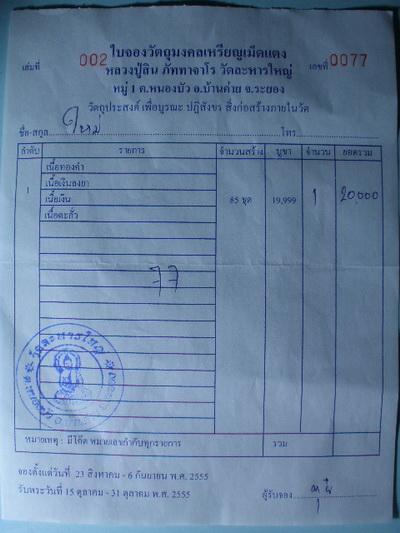 ใบจองวัตถุมงคลเหรียญเม็ดแตง
เล่มที่ 002 หลวงปู่สิน ภัททาจาโร วัดละหารใหญ่ เลขที่ 0077
หมู่ 1 ต.หนองบัว อ.บ้านค่าย จ.ระยอง
วัตถุประสงค์ เพื่อบูรณะ ปฏิสังขร สิ่งก่อสร้างภายในวัด
ชื่อ-สกุล ใหม่ โทร
ลำดับ รายการ จำนวนสร้าง บูชา จำนวน ยอดรวม
เนื้อทองคำ
1 เนื้อเงินลงยา
เนื้อเงิน 85 ชุด 19,999 1 20,000
เนื้อตะกั่ว
77
วัดละหารใหญ่
หมายเหตุ : มีโค๊ต หมายเลขกำกับทุกรายการ รวม
จองตั้งแต่วันที่ 23 สิงหาคม - 6 กันยายน พ.ศ. 2555
รับพระวันที่ 15 ตุลาคม - 31 ตุลาคม พ.ศ. 2555 ผู้รับจอง